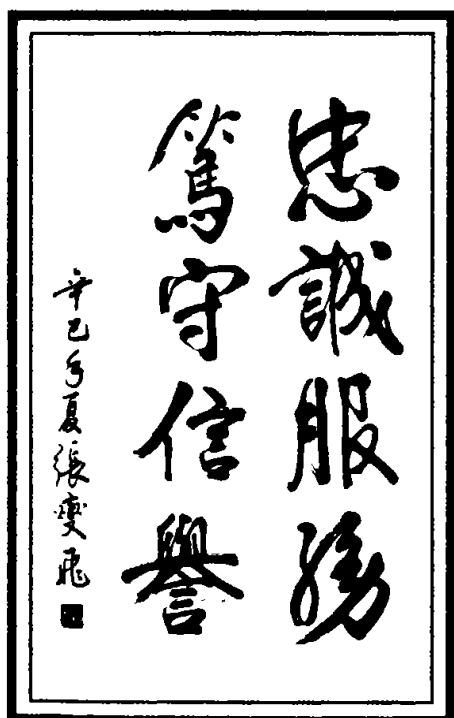 忠誠服務
篤守信譽
辛巳年夏張燮飛